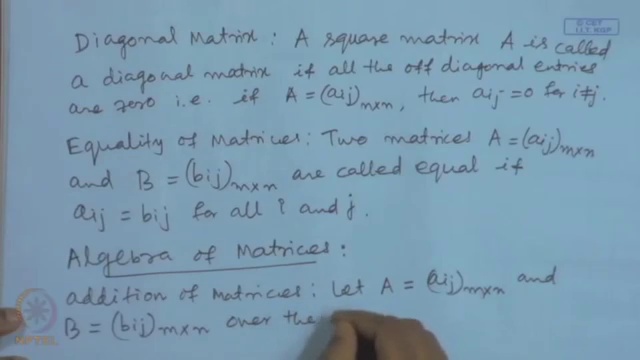 © CET
I.I.T. KGP
Diagonal Matrix: A square matrix A is called
a diagonal matrix if all the off diagonal entries
are zero i.e. if A = (aij)m×n, then aij = 0 for i≠j.
Equality of Matrices: Two matrices A = (aij)m×n
and B = (bij)m×n are called equal if
aij = bij for all i and j.
Algebra of Matrices:
addition of Matrices: Let A = (aij)m×n and
B = (bij)m×n over the
NPTEL